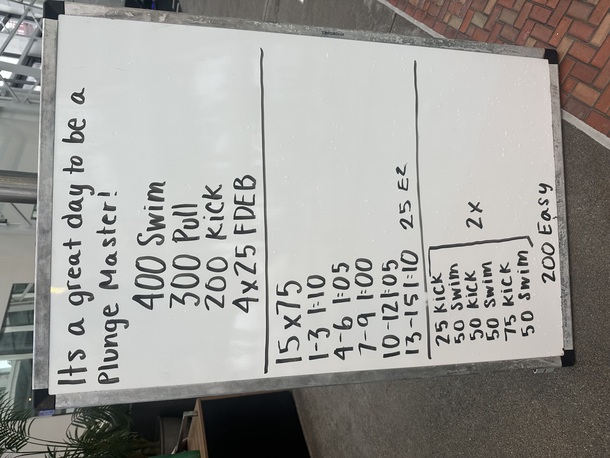 Its a great day to be a
Plunge Master!
400 Swim
300 Pull
200 Kick
4x25 FDEB
15x75
1-3 1:10
4-6 1:05
7-9 1:00
10-12 1:05
13-15 1:10 25 EZ
25 Kick
50 Swim
50 Kick
50 Swim
75 Kick
50 Swim
2x
200 Easy